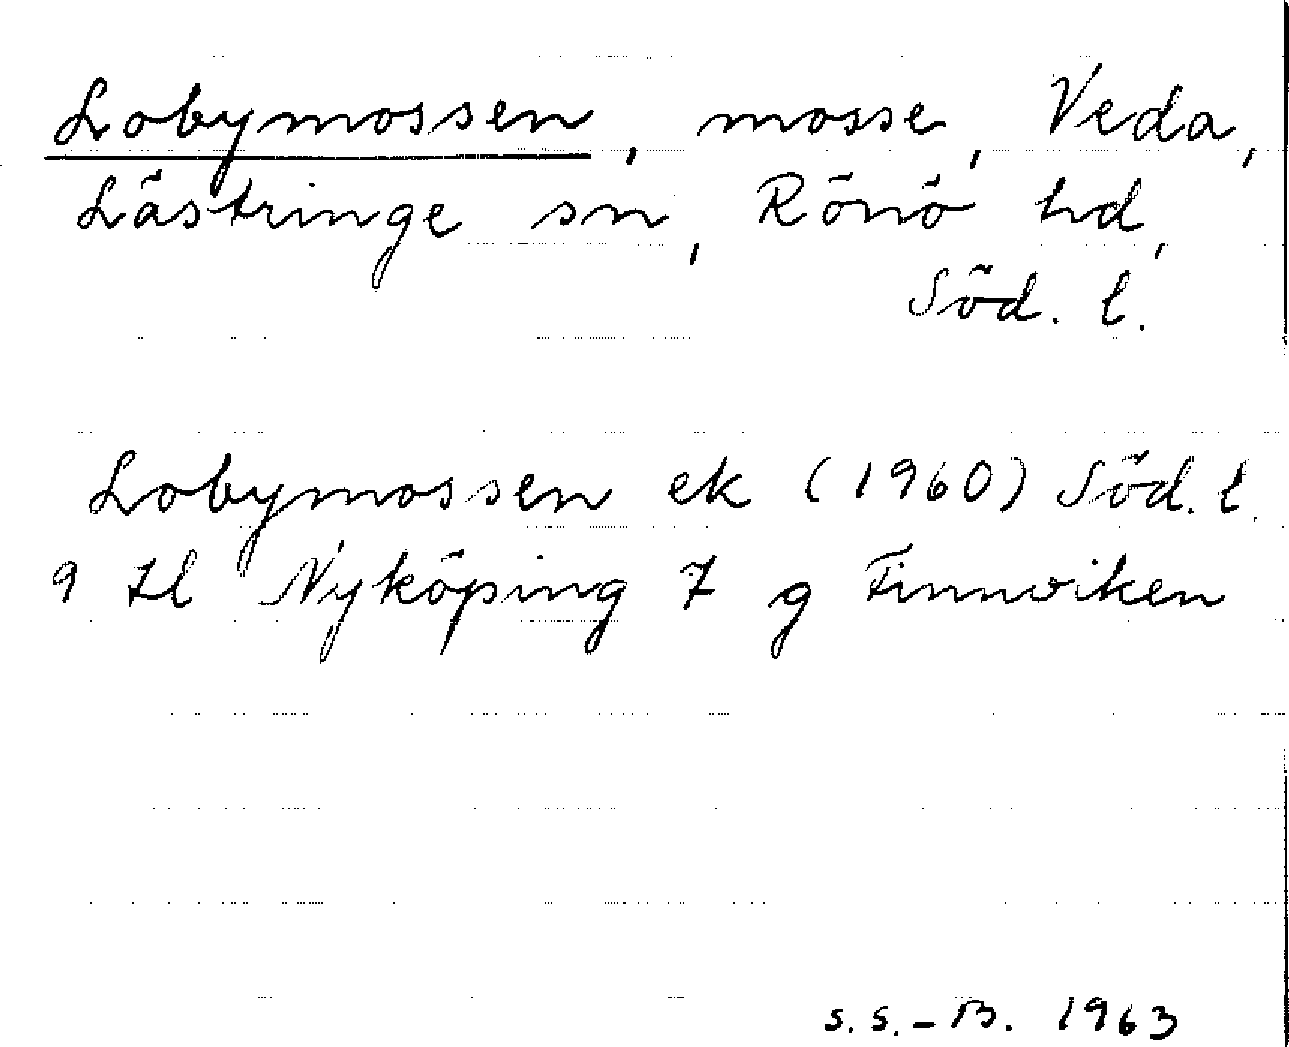 Lobymossen, mosse, Veda,
Lästringe sn, Rönö hd,
Söd. l.
Lobymossen ek (1960) Söd. l.
9 H l Nyköping 7 g Finnviken
S.S.-B. 1963